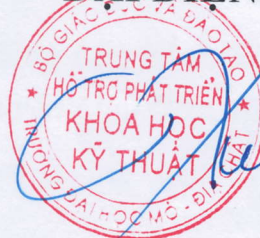 BỘ GIÁO DỤC VÀ ĐÀO TẠO
TRUNG TÂM
HỖ TRỢ PHÁT TRIỂN
KHOA HỌC
KỸ THUẬT
TRƯỜNG ĐẠI HỌC MỎ - ĐỊA CHẤT